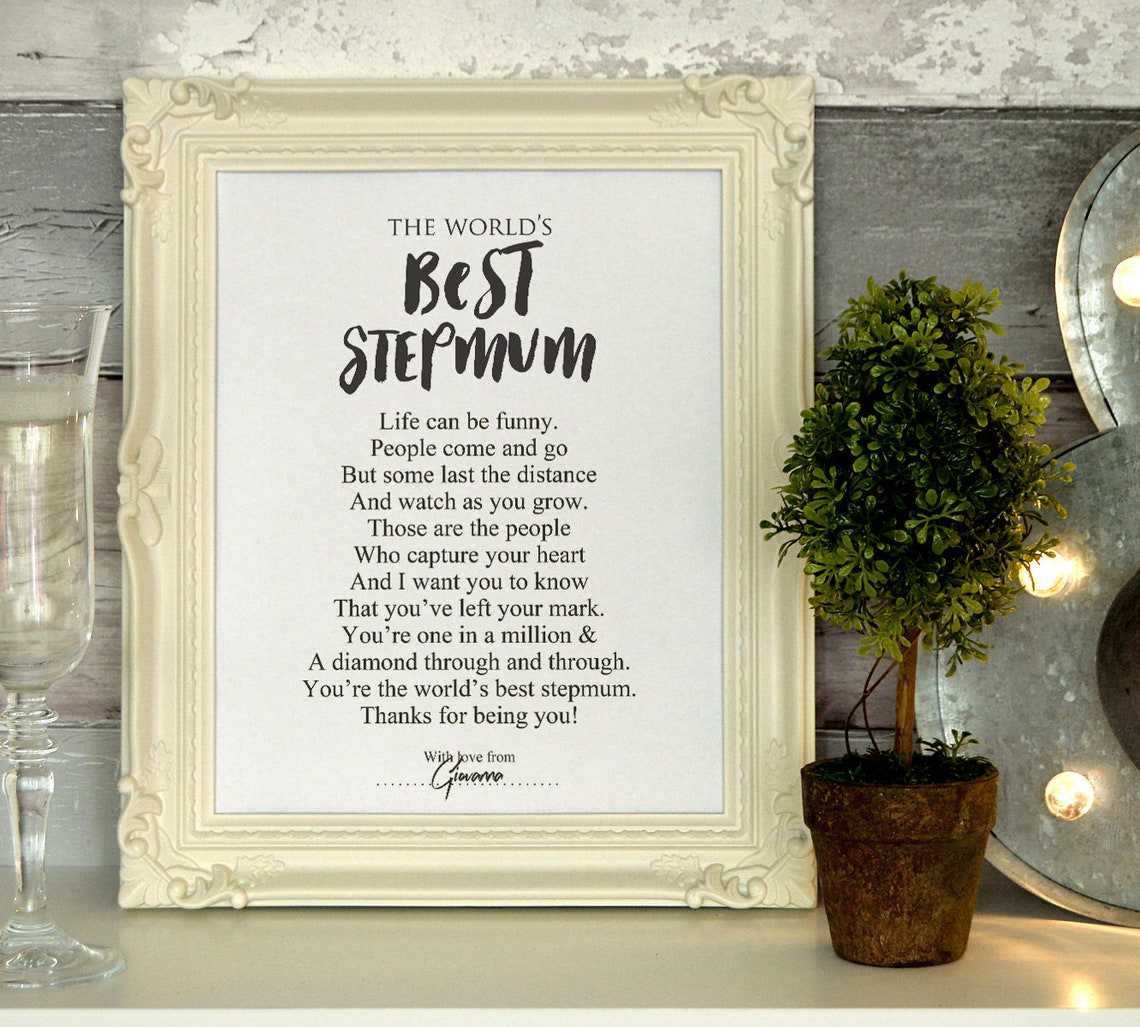 THE WORLD'S
BeST
STEPMUM
Life can be funny.
People come and go
But some last the distance
And watch as you grow.
Those are the people
Who capture your heart
And I want you to know
That you've left your mark.
You're one in a million &
A diamond through and through.
You're the world's best stepmum.
Thanks for being you!
With love from
Giovanna